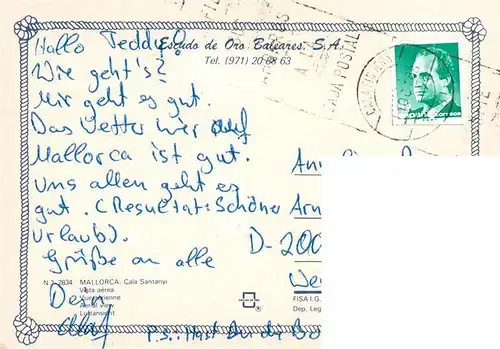 Hallo Teddy!
Escudo de Oro Baleares, S.A.
Tel. (971) 20 88 63
Wie geht's?
Mir geht es gut.
Das Wetter hier auf
Mallorca ist gut.
Uns allen geht es
gut. (Resultat: Schöner
Urlaub).
Grüße an alle
Dein
Olaf
P.S.: Hast Du die
CAJA POSTAL
D-200
N.º 2834 MALLORCA. Cala Santanyí
Vista aérea
Vue aérienne
Aerial view
Luftansicht
FISA I.G.
Dep. Leg